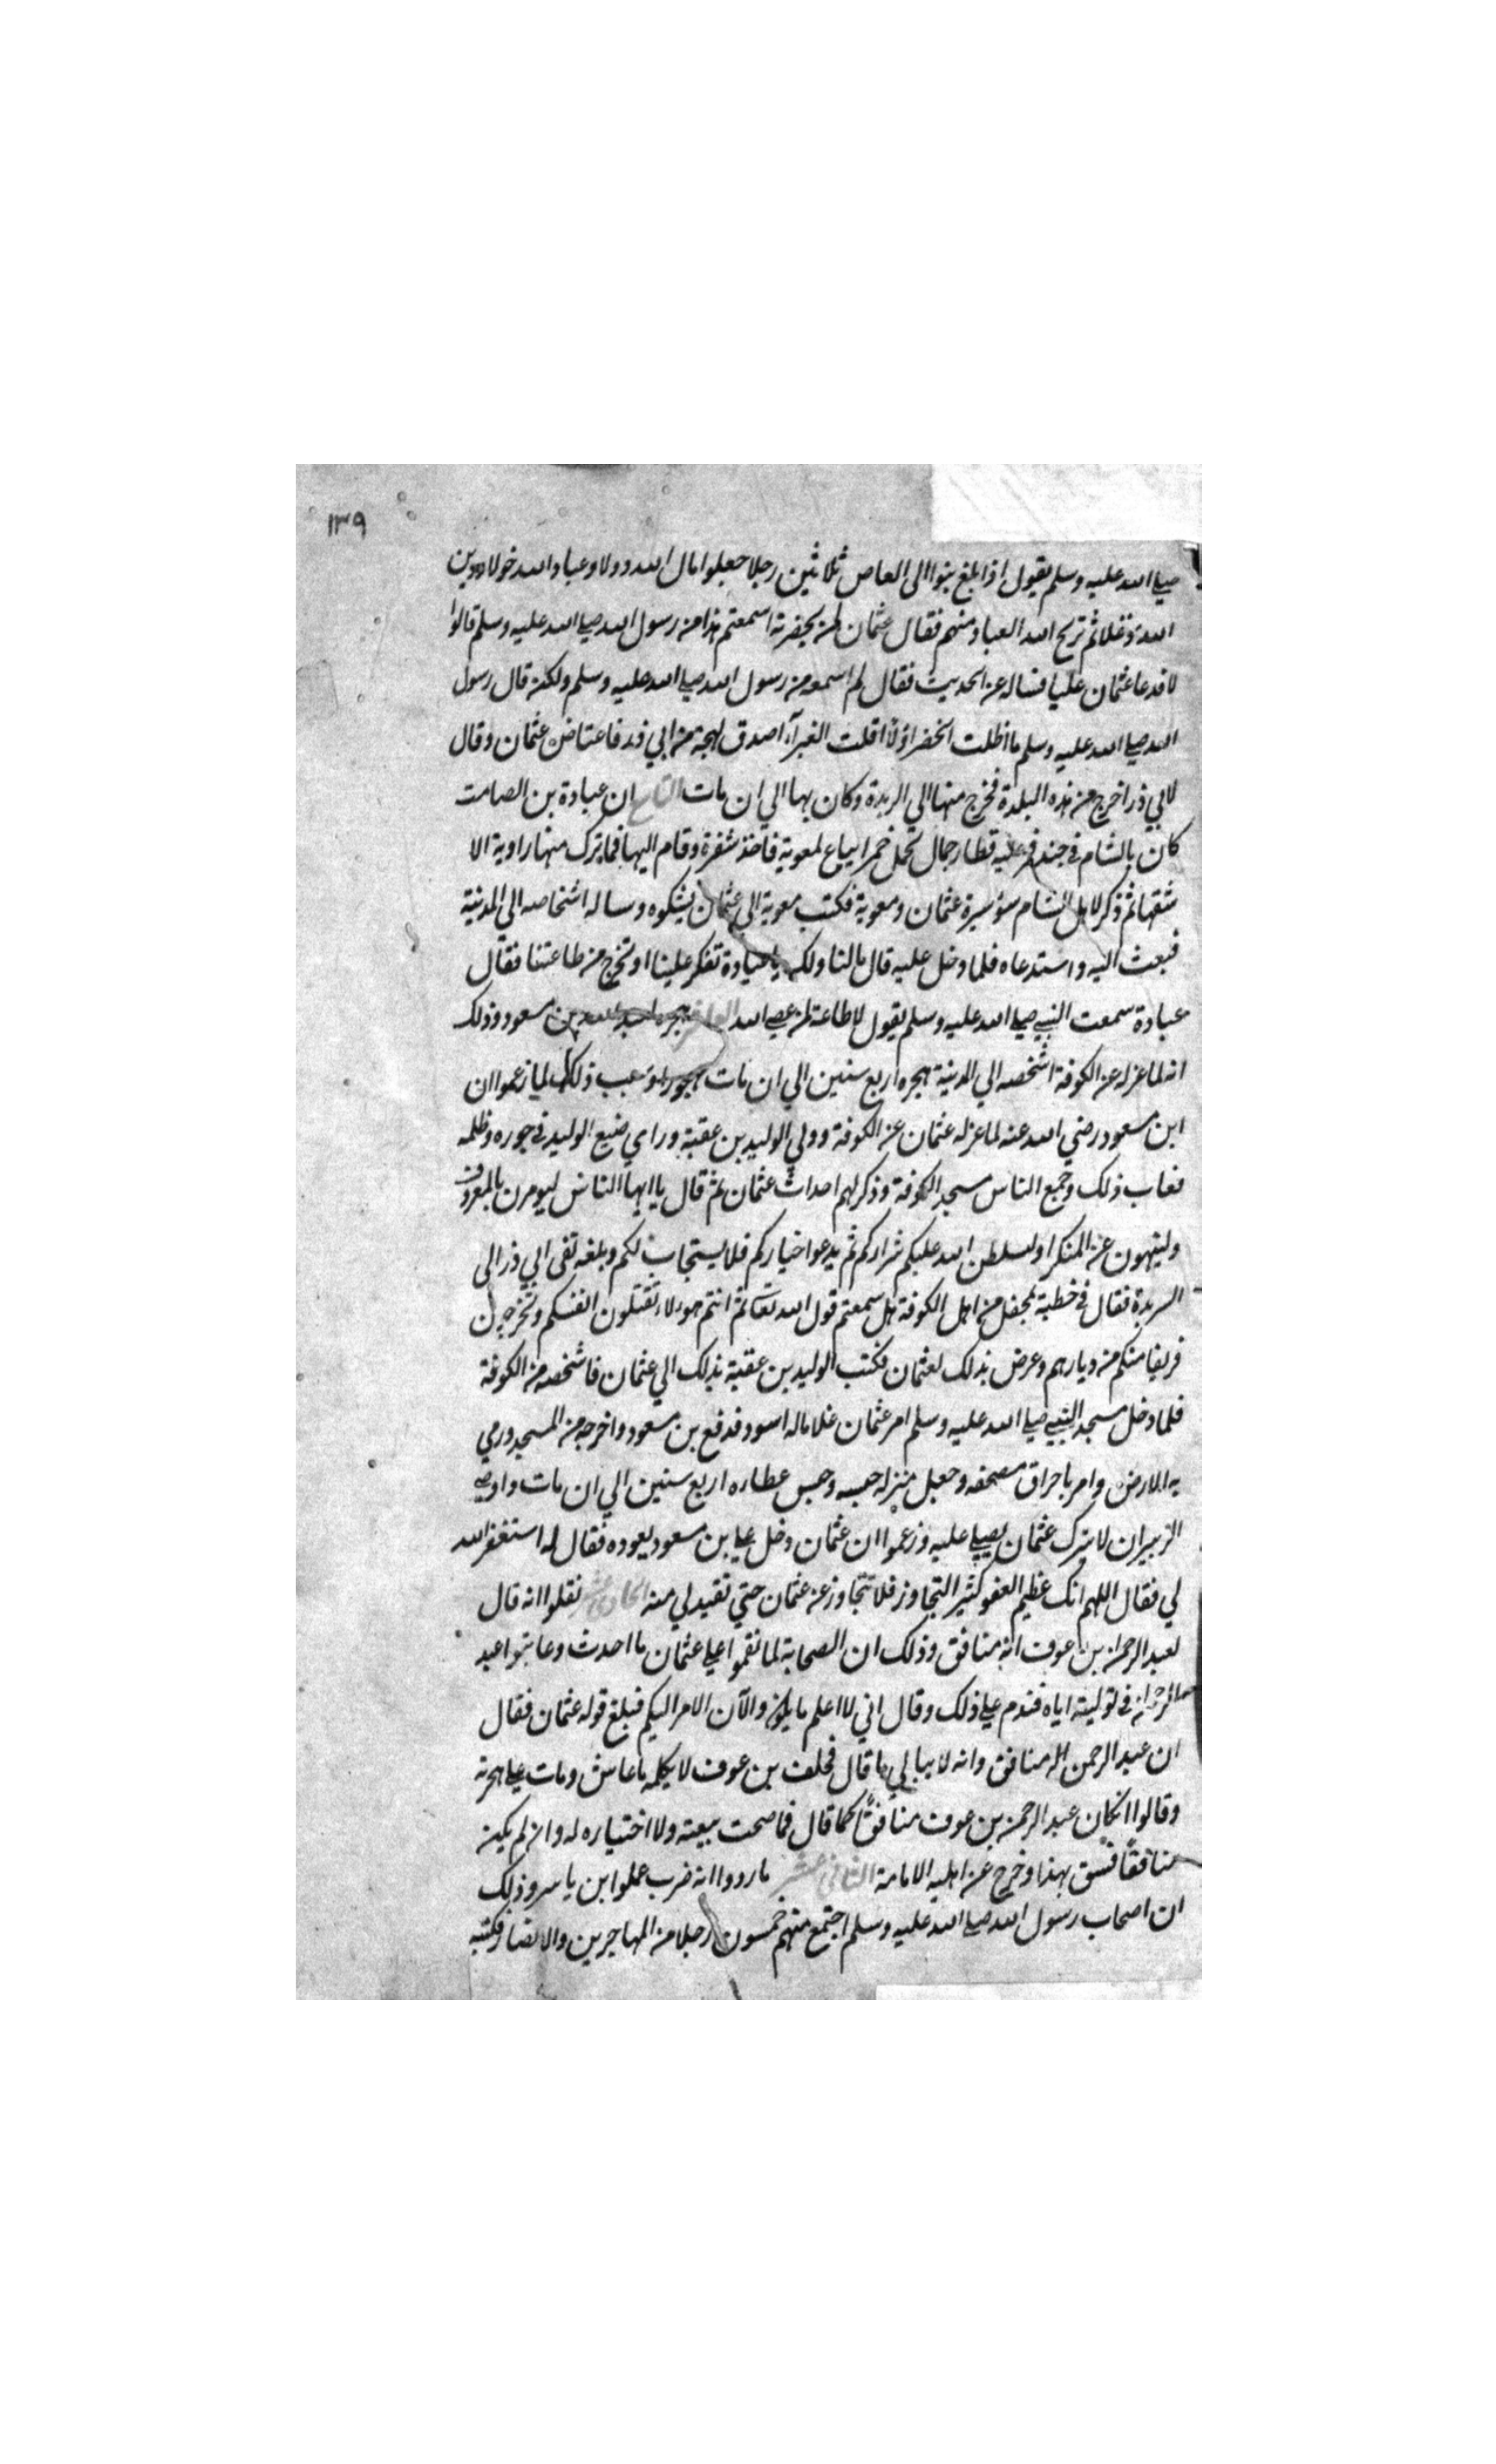 ١٣٩
صلي الله عليه وسلم يقول اذا بلغ بنوا ابي العاص ثلاثين رجلا جعلوا مال الله دولا وعباد الله خولا ودين
الله دغلا ثم تريح الله العباد منهم فقال عثمان لمن بحضرته اسمعتم هذا من رسول الله صلي الله عليه وسلم قالوا
لا فدعا عثمان عليا فساله عن الحديث فقال لم اسمعه من رسول الله صلي الله عليه وسلم ولكن قال رسول
الله صلي الله عليه وسلم ما اظلت الخضرا ولا اقلت الغبرآء اصدق لهجة من ابي ذر فاغتاض عثمان وقال
لابي ذر اخرج من هذه البلدة فخرج منها الي الربدة وكان بها الي ان مات التاسع ان عبادة بن الصامت
كان بالشام في جند فمر عليه قطار جمال تحمل خمرا يباع لمعوية فاخذ شفرة وقام اليها فما ترك منها راوية الا
شقها ثم ذكر لاهل الشام سؤ سيرة عثمان ومعوية فكتب معوية الي عثمان يشكوه وساله اشخاصه الي المدينة
فبعث اليه واستدعاه فلما دخل عليه قال مالنا ولك يا عبادة تفكر علينا او تخرج من طاعتنا فقال
عبادة سمعت النبي صلي الله عليه وسلم يقول لا طاعة لمن عصي الله العاشر هجره لعبد الله بن مسعود وذلك
انه لما عزله عن الكوفة اشخصه الي المدينة هجره اربع سنين الي ان مات مهجورا وسبب ذلك لما زعموا ان
ابن مسعود رضي الله عنه لما عزله عثمان عن الكوفة وولي الوليد بن عقبة وراي صنيع الوليد في جوره وظلمه
فعاب ذلك وجمع الناس مسجد الكوفة وذكر لهم احداث عثمان ثم قال يا ايها الناس ليومرن بالمعروف
ولينهون عن المنكر او ليسلطن الله عليكم شراركم ثم يدعوا خياركم فلا يستجاب لكم وبلغه نفي ابي ذر الي
الربدة فقال في خطبة بمحفل من اهل الكوفة هل سمعتم قول الله تعالي ثم انتم هولاء تقتلون انفسكم وتخرجون
فريقا منكم من ديارهم وعرض بذلك لعثمان فكتب الوليد بن عقبة بذلك الي عثمان فاشخصه من الكوفة
فلما دخل مسجد النبي صلي الله عليه وسلم امر عثمان غلاما له اسود فدفع بن مسعود واخرجه من المسجد ورمي
به الارض وامر باحراق مصحفه وجعل منزله حبسه وحبس عطاره اربع سنين الي ان مات واوصي
الزبير ان لا يترك عثمان يصلي عليه وزعموا ان عثمان دخل علي بن مسعود يعوده فقال له استغفر الله
لي فقال اللهم انك عظيم العفو كثير التجاوز فلا تتجاوز عن عثمان حتي تقيد لي منه الحادي عشر نقلوا انه قال
لعبد الرحمن بن عوف انه منافق وذلك ان الصحابة لما نقموا علي عثمان ما احدث وعاتبوا عبد
الرحمن في توليته اياه فندم علي ذلك وقال اني لا اعلم ما يكون والآن الامر اليكم فبلغ قوله عثمان فقال
ان عبد الرحمن لمنافق وانه لا يبالي ما قال فحلف بن عوف لا يكلمه ما عاش ومات علي هجرته
وقالوا ان كان عبد الرحمن بن عوف منافقًا كما قال فما صحت بيعته ولا اختياره له وان لم يكن
منافقًا فسق بهذا وخرج عن اهلية الامامة الثاني عشر ما رووا انه ضرب عمار ابن ياسر وذلك
ان اصحاب رسول الله صلي الله عليه وسلم اجتمع منهم خمسون رجلا من المهاجرين والانصار فكتبه